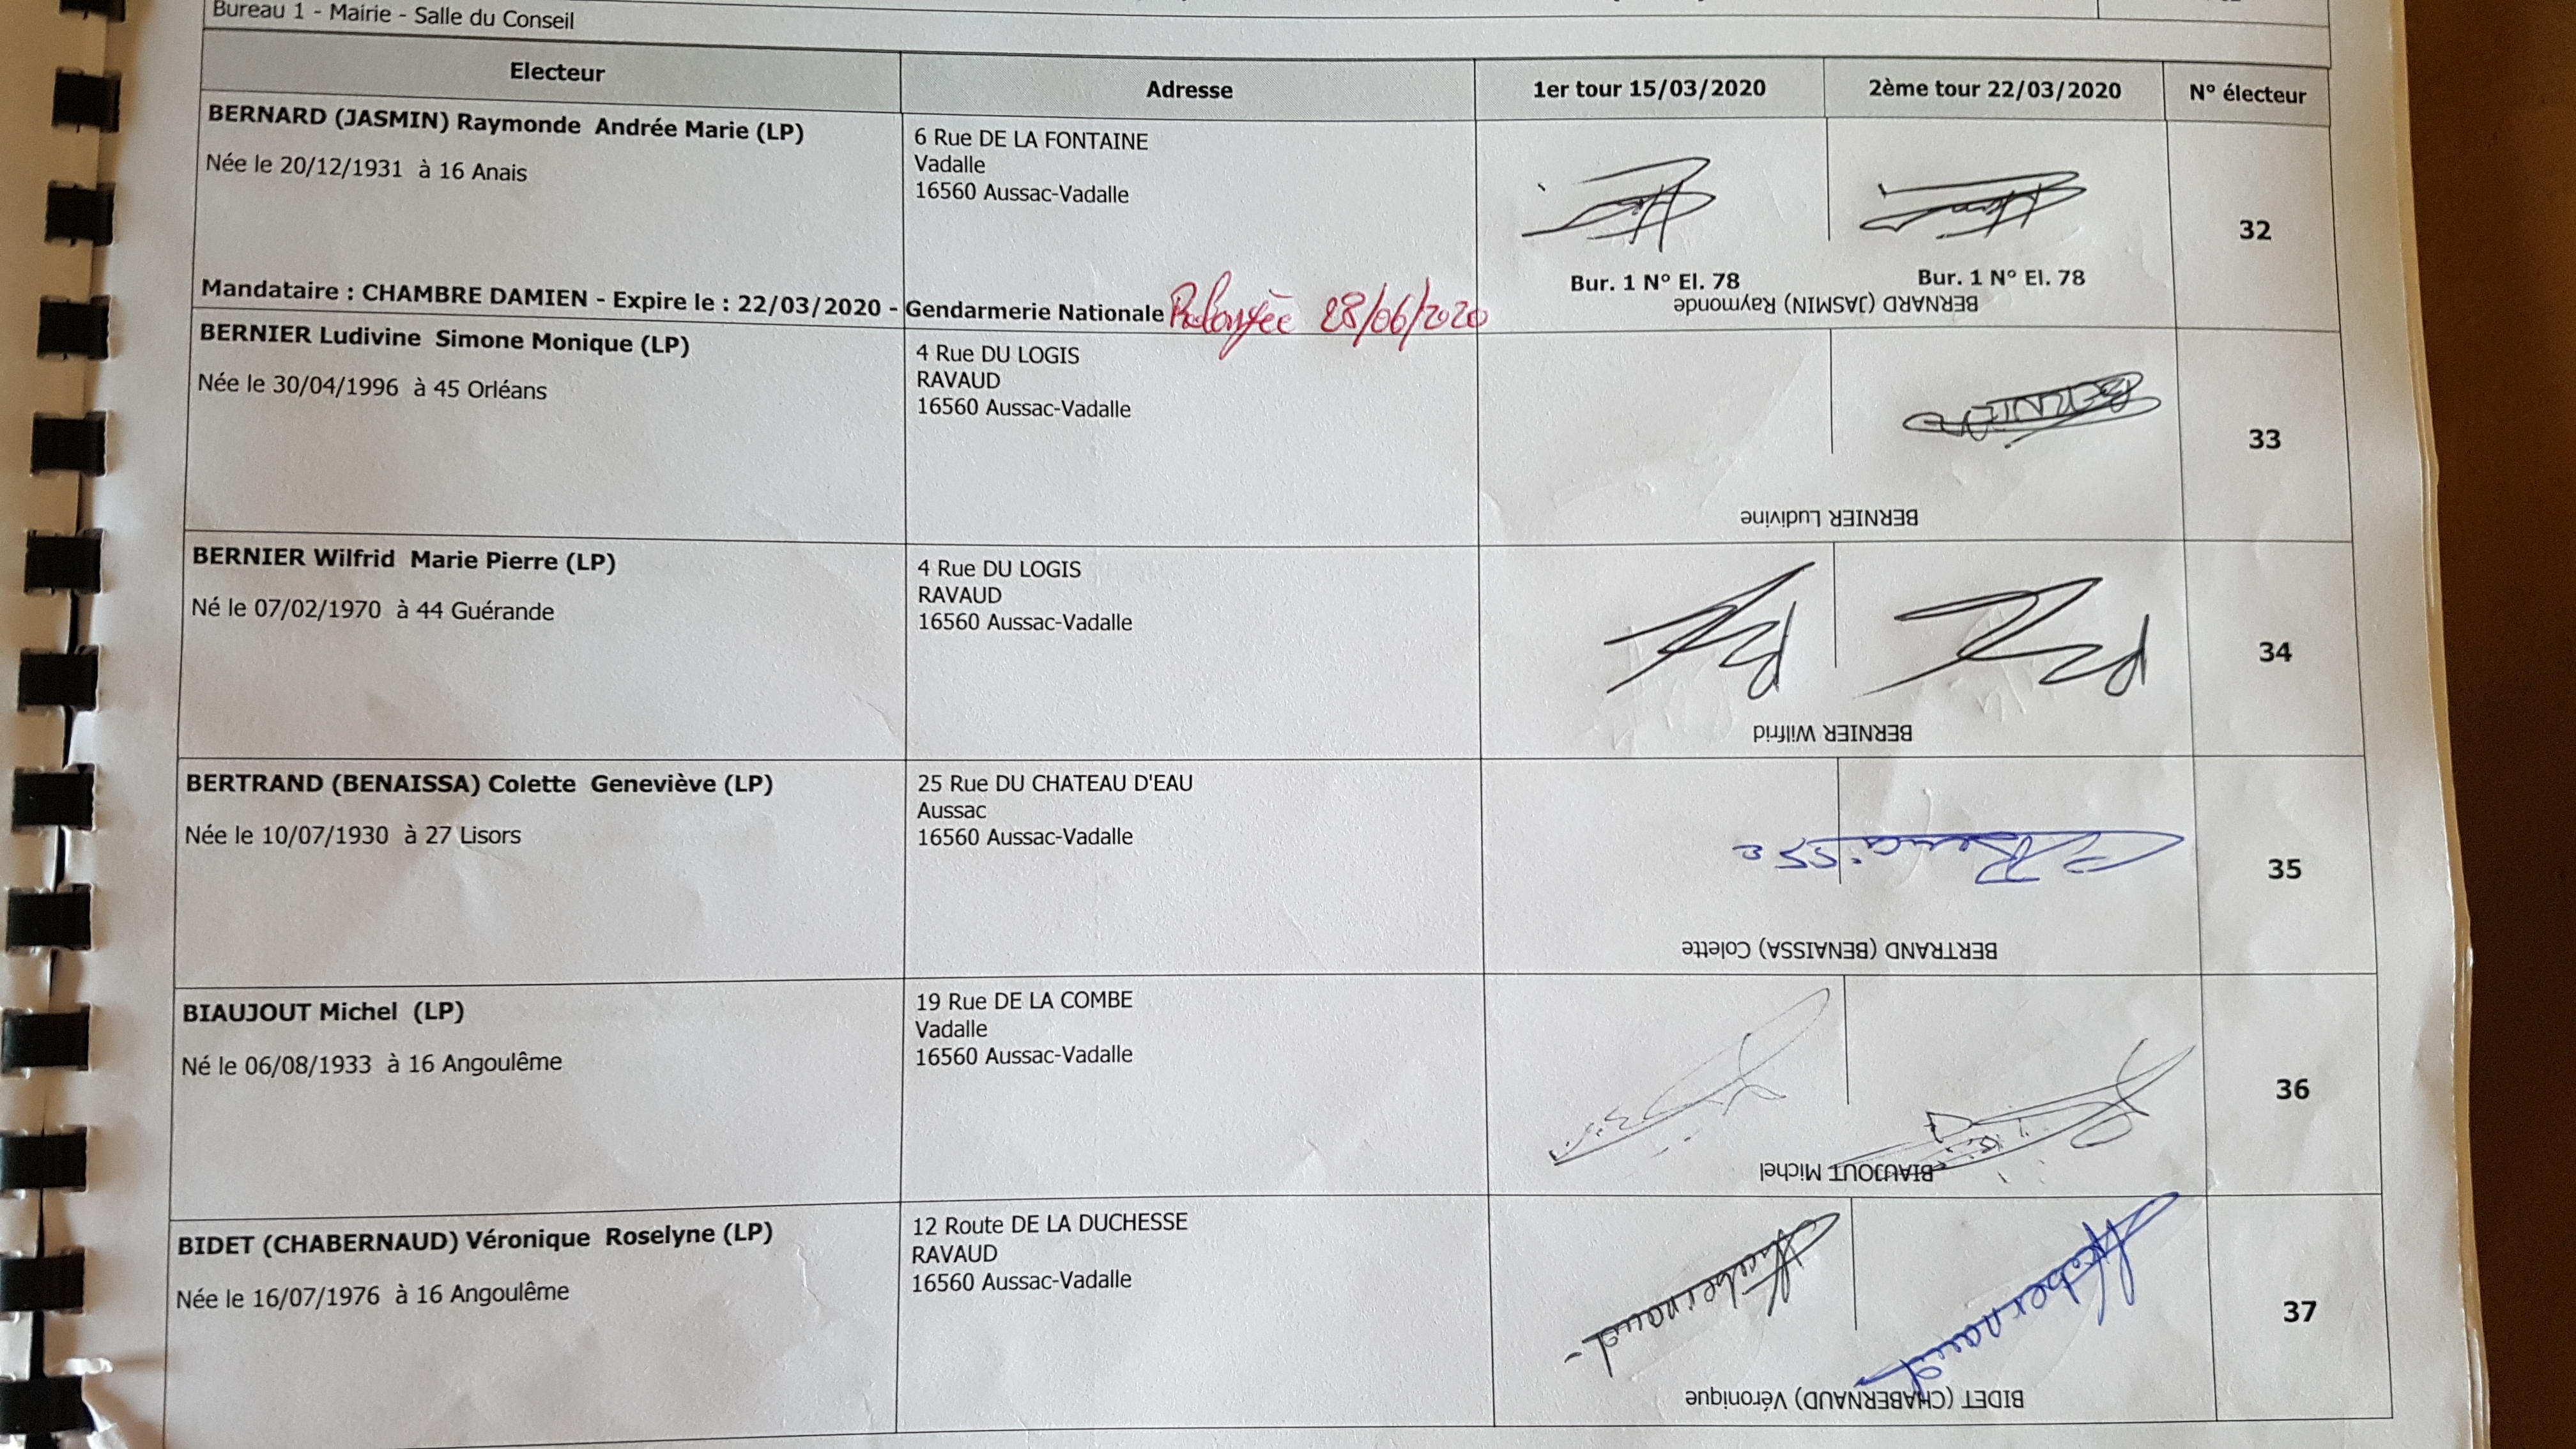 Bureau 1 - Mairie - Salle du Conseil
Electeur
Adresse
1er tour 15/03/2020
2ème tour 22/03/2020
N° électeur
BERNARD (JASMIN) Raymonde Andrée Marie (LP)
Née le 20/12/1931 à 16 Anais
6 Rue DE LA FONTAINE
Vadalle
16560 Aussac-Vadalle
Bur. 1 N° El. 78
Bur. 1 N° El. 78
32
Mandataire : CHAMBRE DAMIEN - Expire le : 22/03/2020 - Gendarmerie Nationale Prolongée 28/06/2020
BERNARD (JASMIN) Raymonde
BERNIER Ludivine Simone Monique (LP)
Née le 30/04/1996 à 45 Orléans
4 Rue DU LOGIS
RAVAUD
16560 Aussac-Vadalle
BERNIER
33
BERNIER Ludivine
BERNIER Wilfrid Marie Pierre (LP)
Né le 07/02/1970 à 44 Guérande
4 Rue DU LOGIS
RAVAUD
16560 Aussac-Vadalle
34
BERNIER Wilfrid
BERTRAND (BENAISSA) Colette Geneviève (LP)
Née le 10/07/1930 à 27 Lisors
25 Rue DU CHATEAU D'EAU
Aussac
16560 Aussac-Vadalle
C Benaissa
35
BERTRAND (BENAISSA) Colette
BIAUJOUT Michel (LP)
Né le 06/08/1933 à 16 Angoulême
19 Rue DE LA COMBE
Vadalle
16560 Aussac-Vadalle
36
BIAUJOUT Michel
BIDET (CHABERNAUD) Véronique Roselyne (LP)
Née le 16/07/1976 à 16 Angoulême
12 Route DE LA DUCHESSE
RAVAUD
16560 Aussac-Vadalle
Chabernaud
Chabernaud
37
BIDET (CHABERNAUD) Véronique